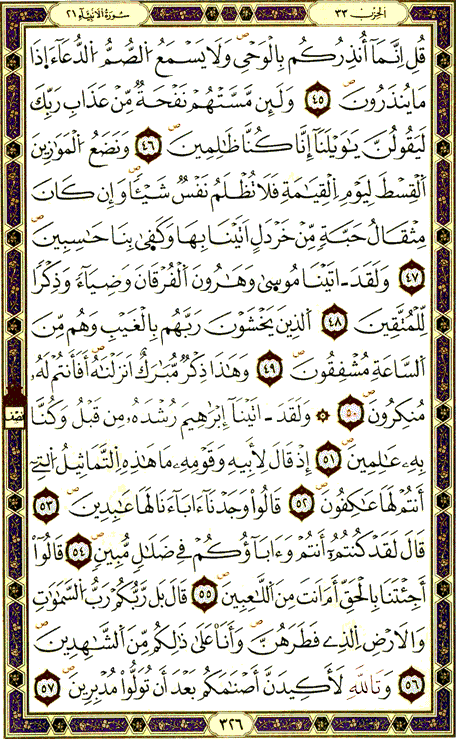 الحزب ٣٣
سورة الأنبياء ٢١
قُلِ اِنَّمَآ أُنذِرُكُم بِالْوَحْيِ وَلَا يَسْمَعُ الصُّمُّ الدُّعَآءَ اِذَا
مَا يُنذَرُونَ ٤٥ وَلَئِن مَّسَّتْهُمْ نَفْحَةٌ مِّنْ عَذَابِ رَبِّكَ
لَيَقُولُنَّ يَٰوَيْلَنَآ إِنَّا كُنَّا ظَٰلِمِينَ ٤٦ وَنَضَعُ الْمَوَٰزِينَ
اَلْقِسْطَ لِيَوْمِ اِلْقِيَٰمَةِ فَلَا تُظْلَمُ نَفْسٌ شَيْـًٔا وَإِن كَانَ
مِثْقَالُ حَبَّةٍ مِّنْ خَرْدَلٍ اَتَيْنَا بِهَا وَكَفَىٰ بِنَا حَٰسِبِينَ
٤٧ وَلَقَدَ ـ اتَيْنَا مُوسَىٰ وَهَٰرُونَ اَلْفُرْقَانَ وَضِيَآءً وَذِكْرًا
لِّلْمُتَّقِينَ ٤٨ اَلذِينَ يَخْشَوْنَ رَبَّهُم بِالْغَيْبِ وَهُم مِّنَ
اَلسَّاعَةِ مُشْفِقُونَ ٤٩ وَهَٰذَا ذِكْرٌ مُّبَٰرَكٌ اَنزَلْنَٰهُ أَفَأَنتُمْ لَهُۥ
مُنكِرُونَ ٥٠ ۞ وَلَقَدَ ـ اتَيْنَآ إِبْرَٰهِيمَ رُشْدَهُۥ مِن قَبْلُ وَكُنَّا
نصف
بِهِۦ عَٰلِمِينَ ٥١ إِذْ قَالَ لِأَبِيهِ وَقَوْمِهِۦ مَا هَٰذِهِ اِلتَّمَاثِيلُ اُلتِے
أَنتُمْ لَهَا عَٰكِفُونَ ٥٢ قَالُوا۟ وَجَدْنَآ ءَابَآءَنَا لَهَا عَٰبِدِينَ ٥٣
قَالَ لَقَدْ كُنتُمُۥٓ أَنتُمْ وَءَابَآؤُكُمْ فِے ضَلَٰلٍ مُّبِينٍ ٥٤ قَالُوٓا۟
أَجِئْتَنَا بِالْحَقِّ أَمَ اَنتَ مِنَ اَللَّٰعِبِينَ ٥٥ قَالَ بَل رَّبُّكُمْ رَبُّ السَّمَٰوَٰتِ
وَالَارْضِ اِلذِے فَطَرَهُنَّ وَأَنَا عَلَىٰ ذَٰلِكُم مِّنَ اَلشَّٰهِدِينَ
٥٦ وَتَاللَّهِ لَأَكِيدَنَّ أَصْنَٰمَكُم بَعْدَ أَن تُوَلُّوا۟ مُدْبِرِينَ ٥٧
٣٢٦